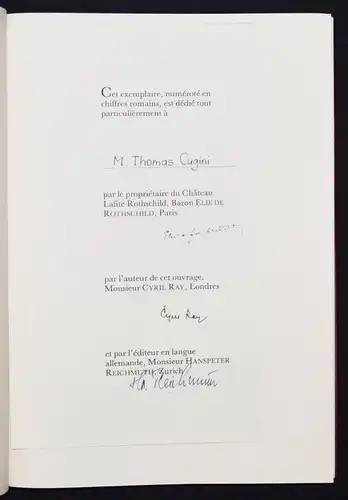 Cet exemplaire, numéroté en
chiffres romains, est dédié tout
particulièrement à
M. Thomas Cugini
par le propriétaire du Château
Lafite Rothschild, Baron ELIE DE
ROTHSCHILD, Paris
par l'auteur de cet ouvrage,
Monsieur CYRIL RAY, Londres
Cyril Ray
et par l'éditeur en langue
allemande, Monsieur HANSPETER
REICHMUTH, Zurich
Reichmuth